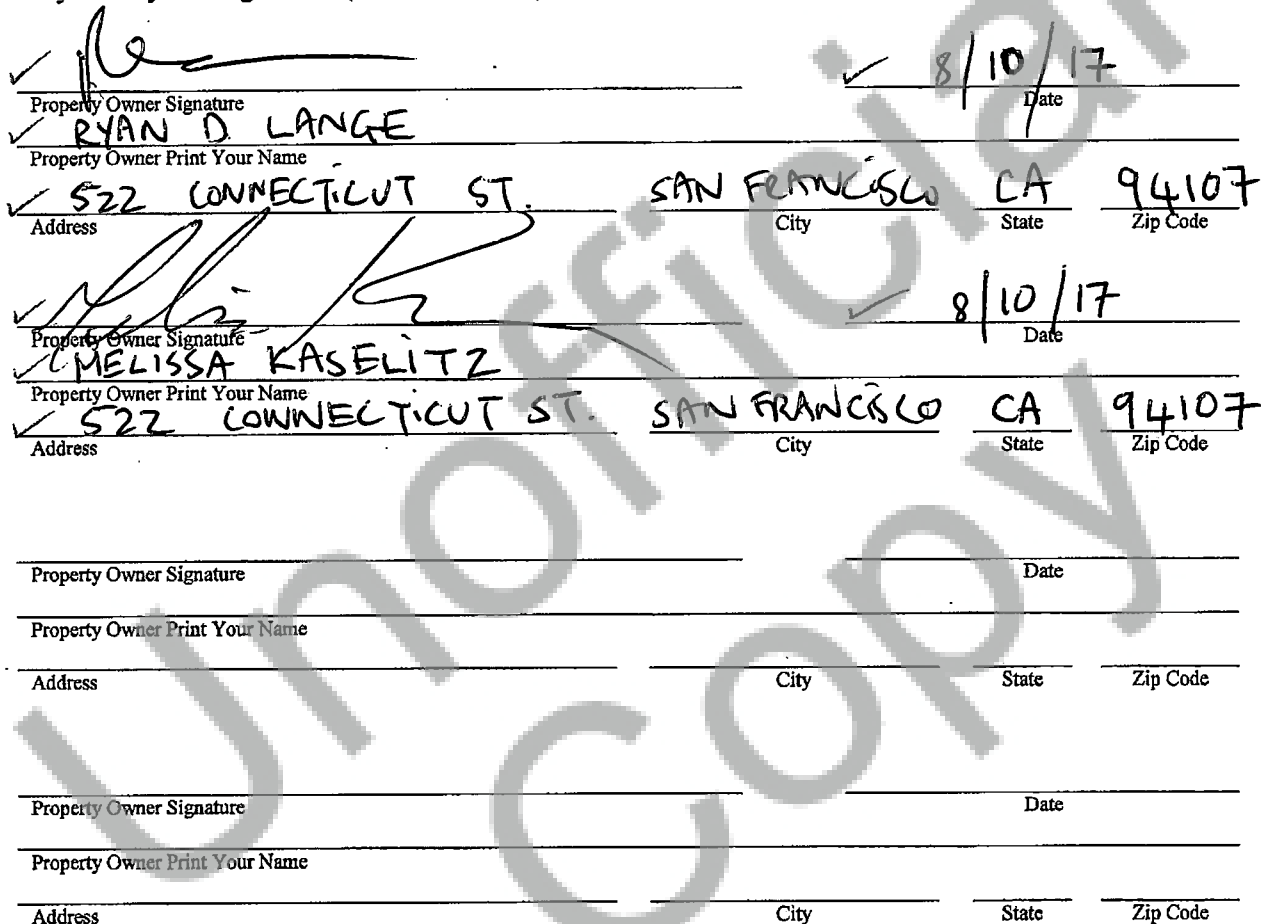 ✓ 8/10/17
Property Owner Signature Date
✓ RYAN D. LANGE
Property Owner Print Your Name
✓ 522 CONNECTICUT ST. SAN FRANCISCO CA 94107
Address City State Zip Code
✓ 8/10/17
Property Owner Signature Date
✓ MELISSA KASELITZ
Property Owner Print Your Name
✓ 522 CONNECTICUT ST. SAN FRANCISCO CA 94107
Address City State Zip Code
Property Owner Signature Date
Property Owner Print Your Name
Address City State Zip Code
Property Owner Signature Date
Property Owner Print Your Name
Address City State Zip Code
Unofficial
Copy